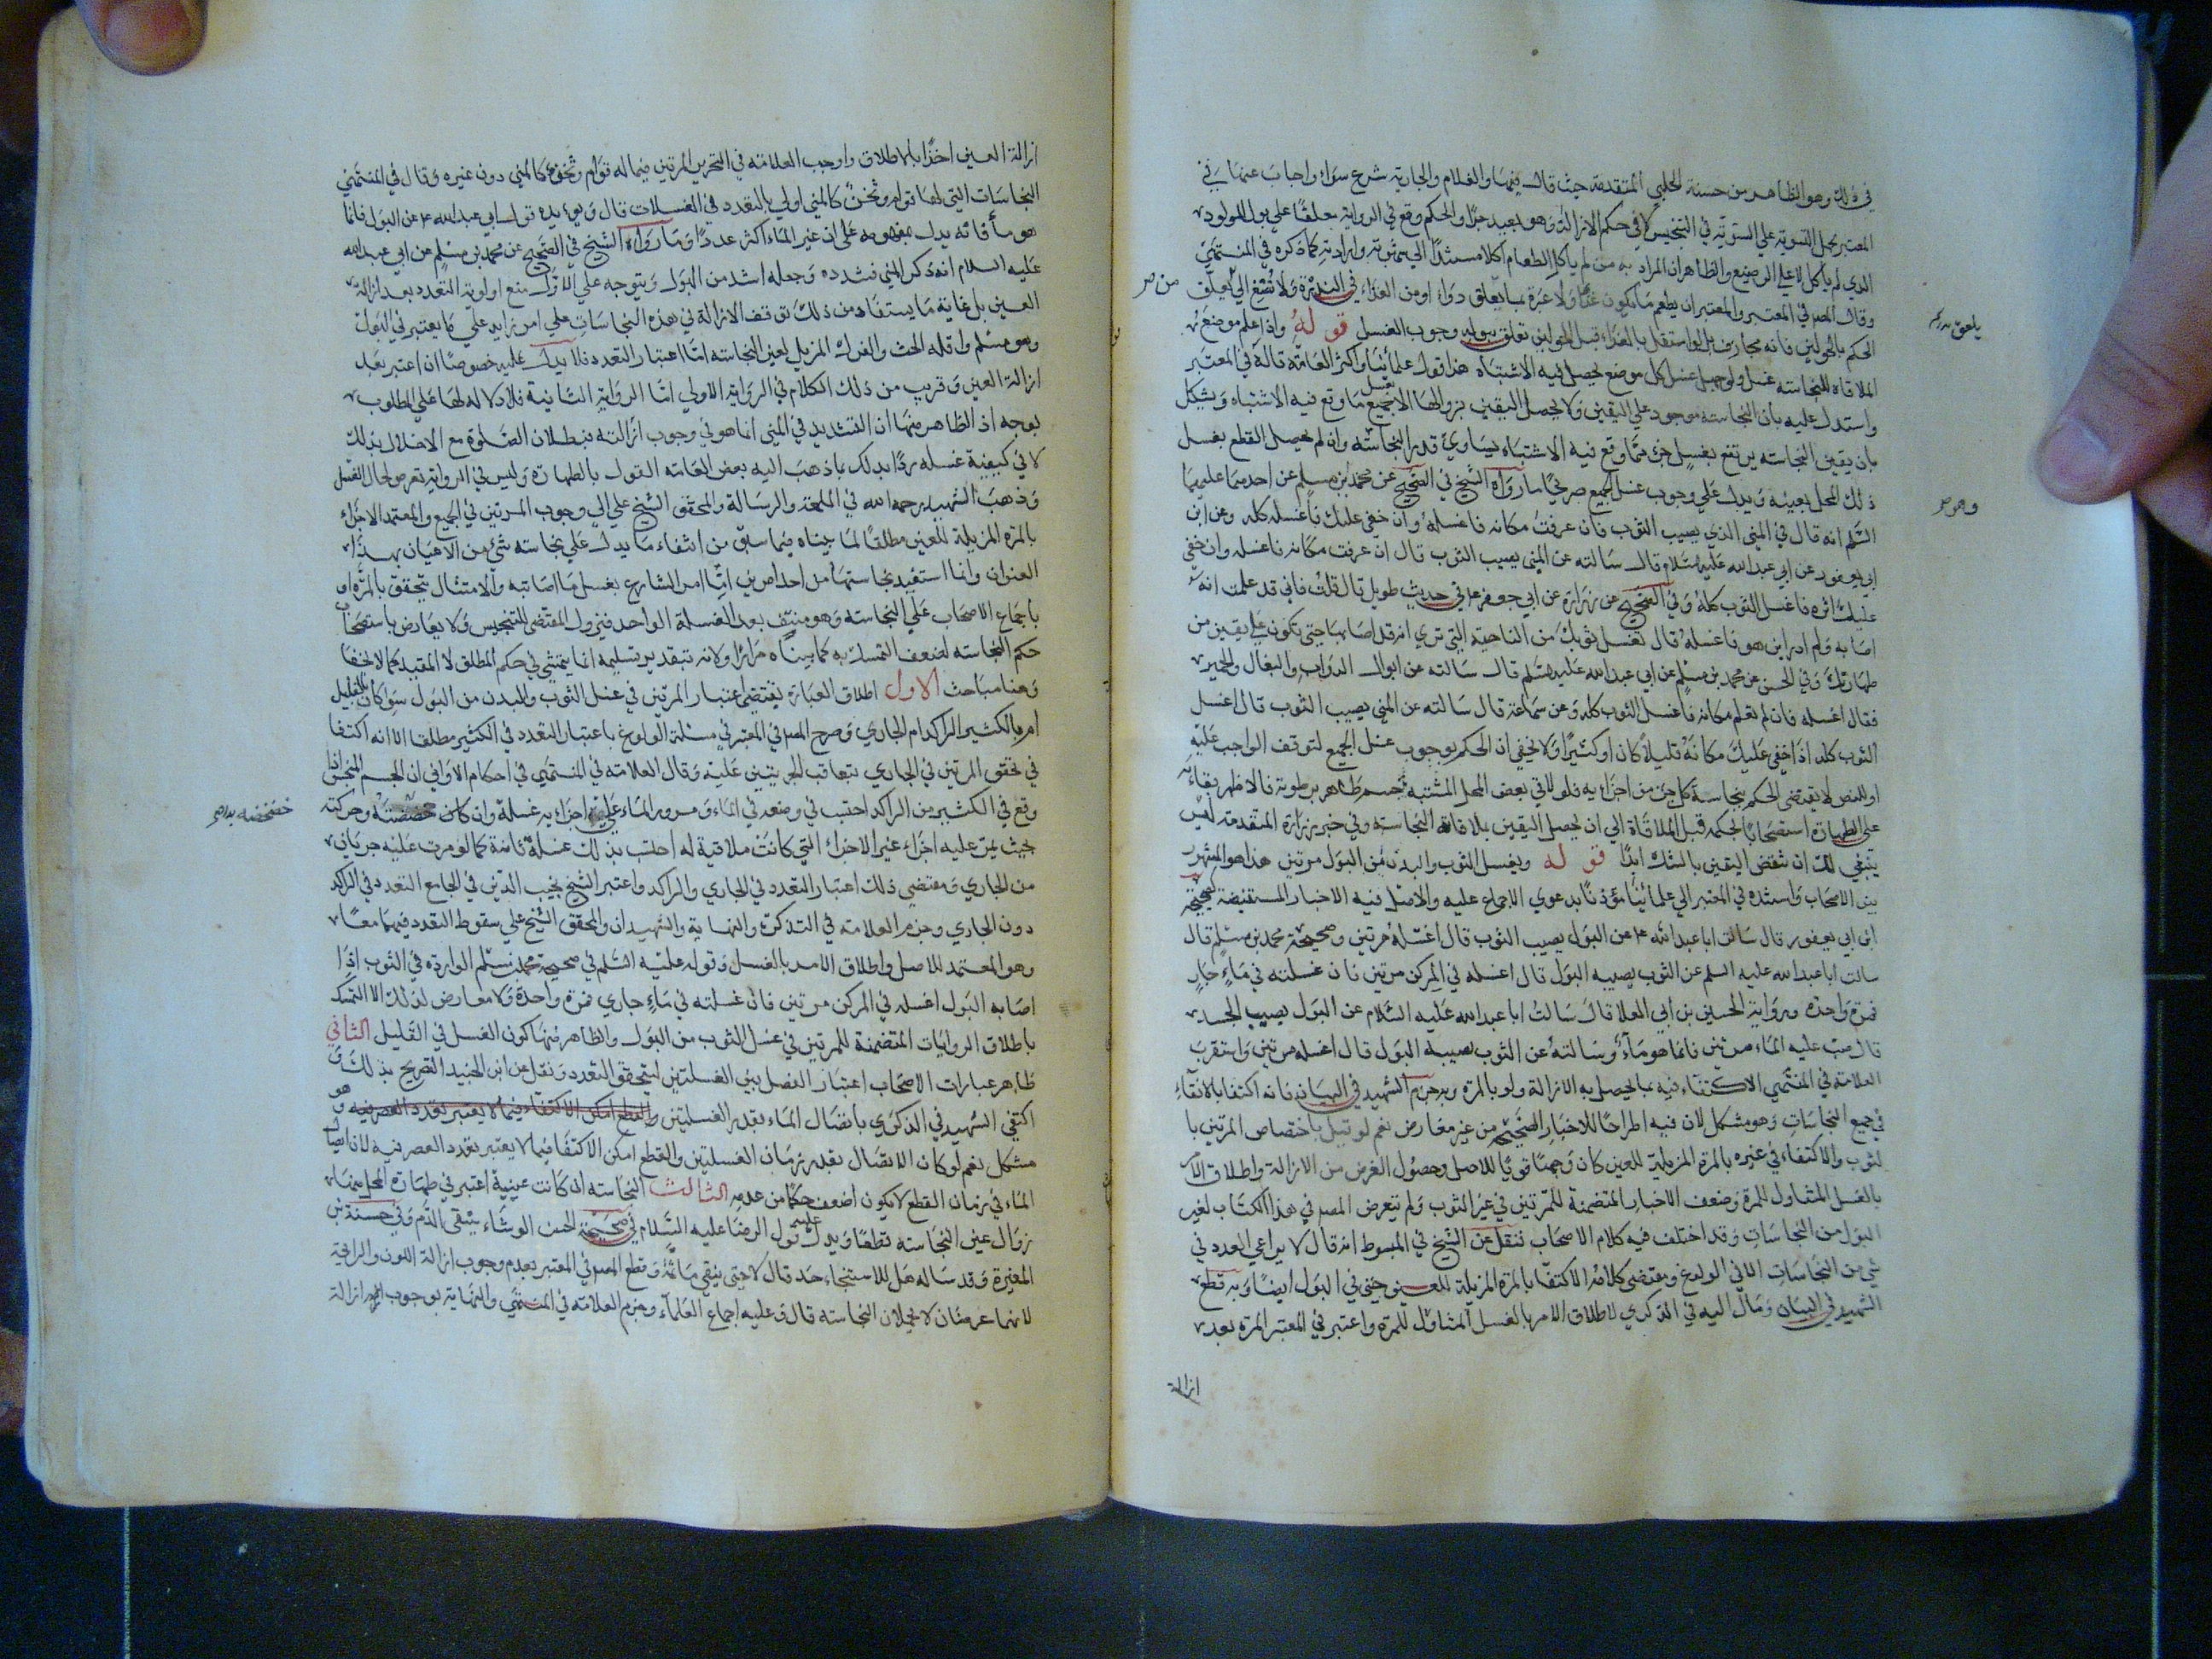 في ذلك وهو الظاهر من حسنة الحلبي المتقدمة حيث قال فيها والغلام والجارية شرع سواء واجاب عنها في
المعتبر بحمل التسوية علي التسوية في التنجيس لا في حكم الازالة وهو بعيد جدًا والحكم وقع في الرواية معلقًا علي بول المولود
الذي لم يأكل لا علي الرضيع والظاهر ان المراد به من لم يأكل الطعام اكلا مستندًا الي شهوته وارادته كما ذكره في المنتهي
وقال المص في المعتبر والمعتبر ان يطعم ما يكون غذاءً ولا عبرة بما يعلق دواء او من الغذاء في الندرة ولا تصغ الي من يعلق
من صر
يلعق
الحكم بالحولين فانه مجازف بل لو استقل بالغذاء قبل الحولين تعلق ببوله وجوب الغسل قوله واذا علم موضع
الملاقاة للنجاسة غسل ولو جهل غسل كل موضع يحصل فيه الاشتباه هذا قول علمائنا واكثر العامة قاله في المعتبر
واستدل عليه بأن النجاسة موجود علي اليقين ولا يحصل اليقين بزوالها الا بغسل جميع ما وقع فيه الاشتباه ويشكل
بان يقين النجاسة يرتفع بغسل جزء مما وقع فيه الاشتباه يساوي قدر النجاسة وان لم يحصل القطع بغسل
ذلك المحل بعينه ويدل علي وجوب غسل الجميع صريحًا ما رواه الشيخ في الصحيح عن محمد بن مسلم عن احدهما عليهما
وهو صر
السلم انه قال في المني الذي يصيب الثوب فان عرفت مكانه فاغسله وان خفي عليك فاغسله كله وعن ابن
ابي يعفور عن ابي عبد الله عليه السلام قال سالته عن المني يصيب الثوب قال ان عرفت مكانه فاغسله وان خفي
عليك اثره فاغسل الثوب كله وفي الصحيح عن زرارة عن ابي جعفر ع في حديث طويل قال قلت فاني قد علمت انه
اصابه ولم ادر اين هو فاغسله قال تغسل ثوبك من الناحية التي تري انه قد اصابها حتي تكون علي يقين من
طهارتك وفي الحسن عن محمد بن مسلم عن ابي عبد الله عليه السلم قال سالته عن ابوال الدواب والبغال والحمير
فقال اغسله فان لم تعلم مكانه فاغسل الثوب كله وعن سماعة قال سالته عن المني يصيب الثوب قال اغسل
الثوب كله اذا خفي عليك مكانه قليلاً كان او كثيرًا ولا يخفي ان الحكم بوجوب غسل الجميع لتوقف الواجب عليه
او للنص لا يقتضي الحكم بنجاسة كل جزء من اجزايه فلو لاقي بعض المحل المشتبه جسم طاهر برطوبة فالاظهر بقاءه
علي الطهارة استصحابًا لحكمه قبل الملاقاة الي ان يحصل اليقين بملاقاته النجاسة وفي خبر زرارة المتقدمة ليس
ينبغي لك ان تنقض اليقين بالشك ابدًا قوله ويغسل الثوب والبدن من البول مرتين هذا هو المشهور
بين الاصحاب واسنده في المعتبر الي علمائنا مؤذنًا بدعوي الاجماع عليه والاصل فيه الاخبار المستفيضة كصحيحة
ابن ابي يعفور قال سالت ابا عبد الله ع عن البول يصيب الثوب قال اغسله مرتين وصحيحة محمد بن مسلم قال
سالت ابا عبد الله عليه السلم عن الثوب يصيبه البول قال اغسله في المركن مرتين فان غسلته في ماء جارٍ
فمرة واحدة ورواية الحسين بن ابي العلا قال سالت ابا عبد الله عليه السلام عن البول يصيب الجسد
قال صب عليه الماء مرتين فانما هو ماء وسالته عن الثوب يصيبه البول قال اغسله مرتين واستقرب
العلامة في المنتهي الاكتفاء فيه بما يحصل به الازالة ولو بالمرة وبه جزم الشهيد في البيان فانه اكتفا بالانقاء
في جميع النجاسات وهو مشكل لان فيه اطراحًا للاخبار الصحيحة من غير معارض نعم لو قيل باختصاص المرتين با
لثوب والاكتفاء في غيره بالمرة المزيلة للعين كان وجهًا قويًا للاصل وحصول الغرض من الازالة واطلاق الامر
بالغسل المتناول للمرة وضعف الاخبار المتضمنة للمرتين في غير الثوب ولم يتعرض المص في هذا الكتاب لغير
البول من النجاسات وقد اختلف فيه كلام الاصحاب فنقل عن الشيخ في المبسوط انه قال لا يراعي العدد في
شي من النجاسات الا في الولوغ ومقتضي كلامه الاكتفا بالمرة المزيلة للعين حتي في البول ايضا وبه قطع
الشهيد في البيان ومال اليه في الذكري لاطلاق الامر بالغسل المتناول للمرة واعتبر في المعتبر المرة بعد
ازالة
ازالة العين اخذًا بالاطلاق واوجب العلامة في التحرير المرتين فيما له قوام وثخن كالمني دون غيره وقال في المنتهي
النجاسات التي لها قوام وثخن كالمني اولي بالتعدد في الغسلات قال ويؤيده قول ابي عبد الله ع عن البول فانما
هو ماء فانه يدل بمفهومه علي ان غير الماء اكثر عددًا وما رواه الشيخ في الصحيح عن محمد بن مسلم عن ابي عبد الله
عليه السلام انه ذكر المني فشدده وجعله اشد من البول ويتوجه علي الاول منع اولوية التعدد بعد ازالة
العين بل غاية ما يستفاد من ذلك توقف الازالة في هذه النجاسات علي امر زايد علي ما يعتبر في البول
وهو مسلم واقله الحث والفرك المزيل لعين النجاسة اما اعتبار التعدد فلا يدل عليه خصوصًا ان اعتبر بعد
ازالة العين وقريب من ذلك الكلام في الرواية الاولي اما الرواية الثانية فلا دلالة لها علي المطلوب
بوجه اذ الظاهر منها ان التشديد في المني انما هو في وجوب ازالته فبطلان الصلوة مع الاخلال بذلك
لا في كيفية غسله ردًا بذلك ما ذهب اليه بعض العامة القول بالطهارة وليس في الرواية تعرض لحال الغسل
وذهب الشهيد رحمه الله في اللمعة والرسالة والمحقق الشيخ علي الي وجوب المرتين في الجميع والمعتمد الاجزاء
بالمرة المزيلة للعين مطلقًا لما بيناه فيما سلف من انتفاء ما يدل علي نجاسة شيء من الاعيان بهذا
العنوان وانما استفيد نجاستها من احد امرين اما امر الشارع بغسل ما اصابته والامتثال يتحقق بالمرة او
باجماع الاصحاب علي النجاسة وهو منتف بعد الغسلة الواحدة فيزول المقتضي للتنجيس ولا يعارض باستصحاب
حكم النجاسة لضعف التمسك به كما بيناه مرارًا ولانه بتقدير تسليمه انما يتمشي في حكم المطلق لا المقيد كما لا يخفا
وهنا مباحث الاول اطلاق العبارة يقتضي اعتبار المرتين في غسل الثوب والبدن من البول سواء كان بالقليل
ام بالكثير الراكد ام الجاري وصرح المص في المعتبر في مسئلة الولوغ باعتبار التعدد في الكثير مطلقا الا انه اكتفا
في تحقق المرتين في الجاري بتعاقب الجريتين عليه وقال العلامة في المنتهي في احكام الاواني ان الجسم النجس اذا
وقع في الكثير من الراكد احتسب في وضعه في الماء ومرور الماء علي اجزايه غسلة وان كان خضخضته وحركته
خضخضه بدل صر
بحيث يمر عليه اجزاء غير الاجزاء التي كانت ملاقية له احتسب بذلك غسلة ثانية كما لو مرت عليه جريات
من الجاري ومقتضي ذلك اعتبار التعدد في الجاري والراكد واعتبر الشيخ نجيب الدين في الجامع التعدد في الراكد
دون الجاري وجزم العلامة في التذكرة والنهاية والشهيدان والمحقق الشيخ علي سقوط التعدد فيهما معًا
وهو المعتمد للاصل واطلاق الامر بالغسل وقوله عليه السلم في صحيحة محمد بن مسلم الوارده في الثوب اذا
اصابه البول اغسله في المركن مرتين فان غسلته في ماء جاري فمرة واحدة ولا معارض لذلك الا التمسك
باطلاق الروايات المتضمنة للمرتين في غسل الثوب من البول والظاهر منها كون الغسل في القليل الثاني
ظاهر عبارات الاصحاب اعتبار الفصل بين الغسلتين ليتحقق التعدد ونقل عن ابن الجنيد التصريح بذلك و
اكتفي الشهيد في الذكري باتصال الماء بقدر الغسلتين والقطع امكن الاكتفاء فيما لا يعتبر تعدد العصر فيه وهو
مشكل نعم لو كان الاتصال بقدر زمان الغسلتين والقطع امكن الاكتفا فيما لا يعتبر تعدد العصر فيه لان اتصال
الماء في زمان القطع لا يكون اضعف حكمًا من عدمه الثالث النجاسة ان كانت عينية اعتبر في طهارة المحل منها
زوال عين النجاسة قطعًا ويدل عليه قول الرضا عليه السلام في صحيحة الحسن الوشاء ينقي الدم وفي حسنة بن
المغيرة وقد ساله هل للاستنجاء حد قال لا حتي ينقي ما ثمة وقطع المص في المعتبر بعدم وجوب ازالة اللون والرايحة
لانهما عرضان لا يحملان النجاسة قال وعليه اجماع العلماء وجزم العلامة في المنتهي والنهاية بوجوب ازالة